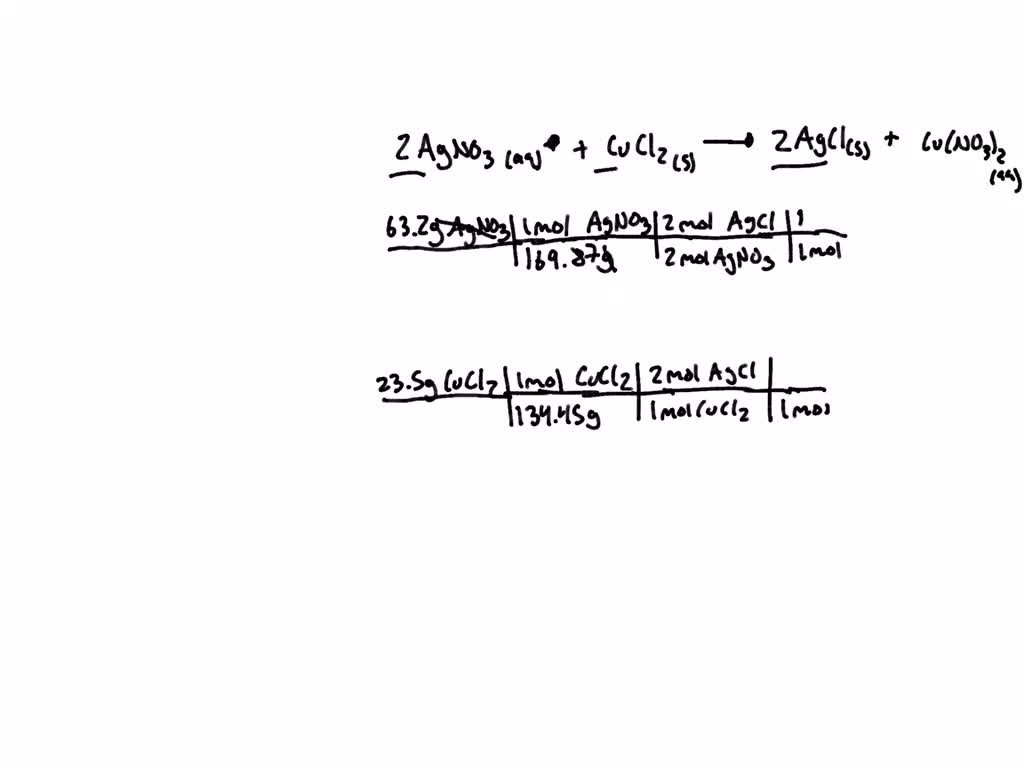 2AgNO3 (aq) + CuCl2 (s) → 2AgCl(s) + Cu(NO3)2 (aq)
63.2g AgNO3 | 1mol AgNO3 | 2mol AgCl | 1
169.87g | 2mol AgNO3 | 1mol
23.5g CuCl2 | 1mol CuCl2 | 2mol AgCl |
134.45g | 1mol CuCl2 | 1mol